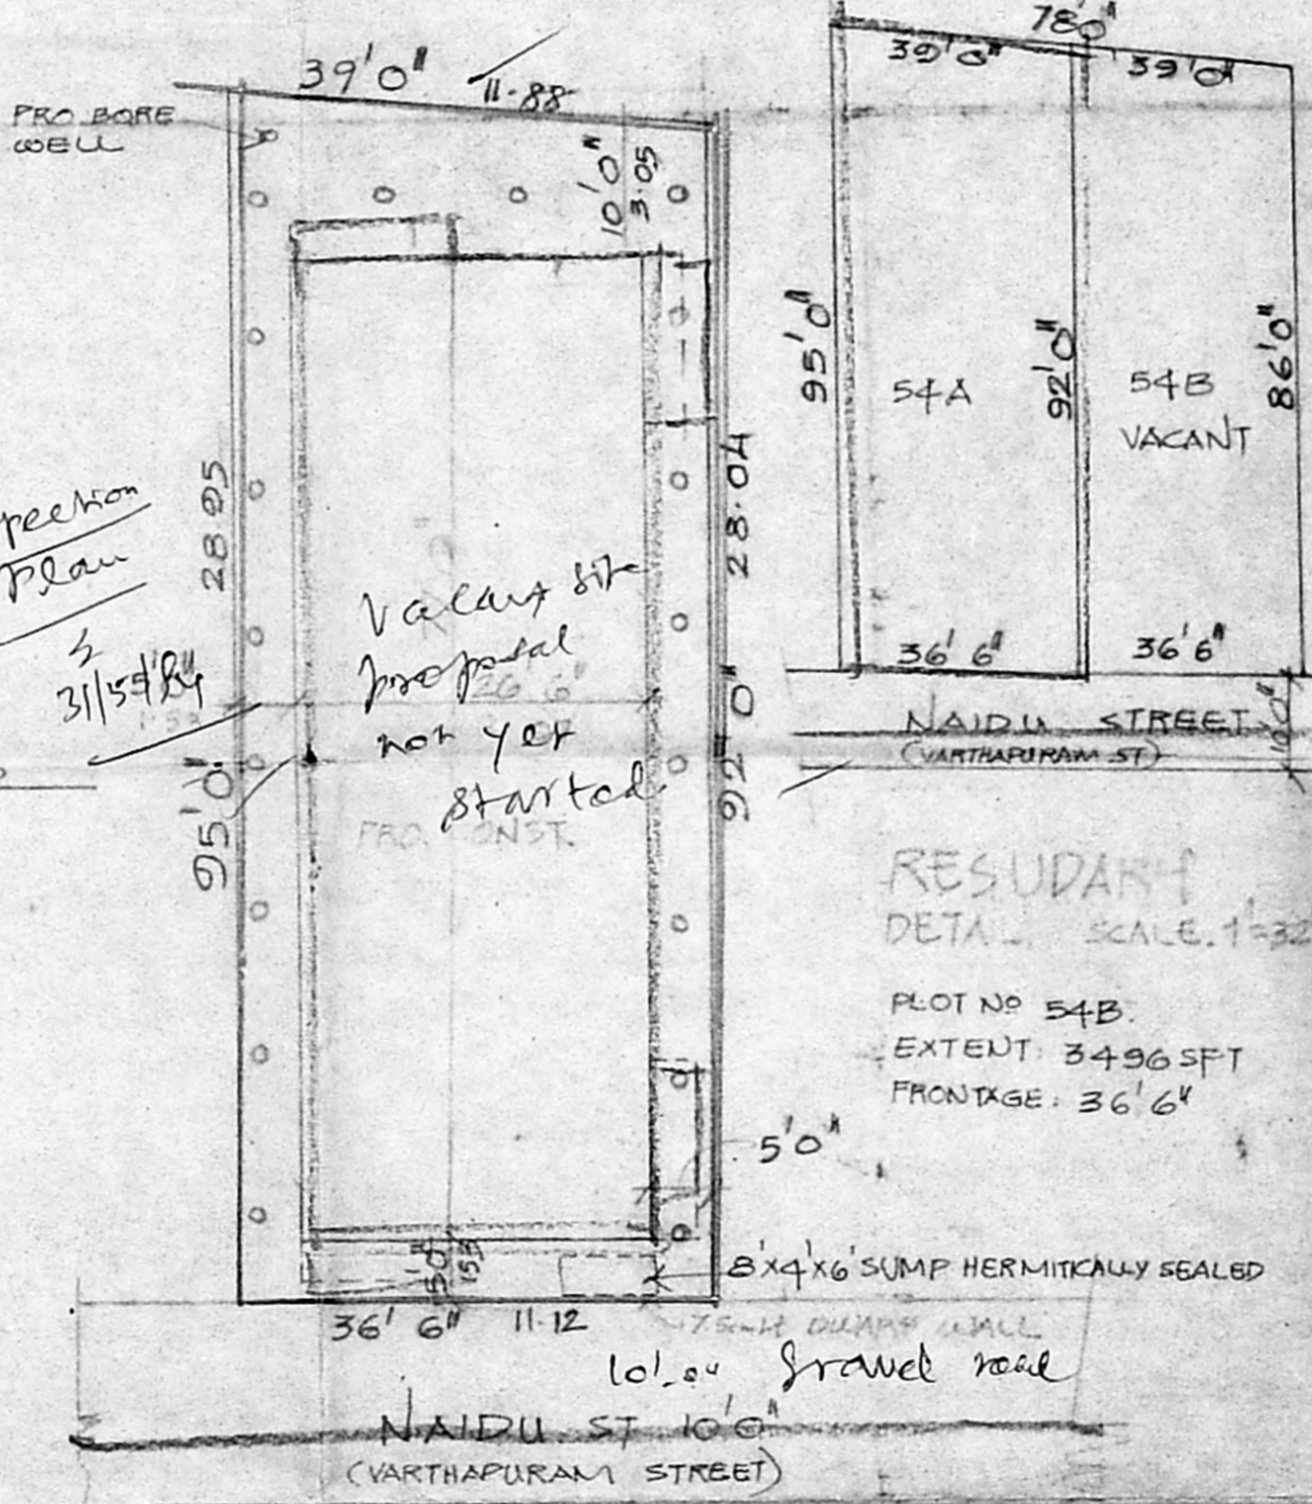 39'0" 11.88
PRO BORE
WELL
10'0"
3.05
28.95
95'0"
28.04
92'0"
Plan
Vacant Site
proposal
26'6"
not yet
started
PRO. CONST.
5'0"
5'0"
8'X4'X6' SUMP HERMITICALLY SEALED
36' 6" 11.12
DWARF WALL
10'.0" Gravel road
NAIDU ST 10'0"
(VARTHAPURAM STREET)
78'0"
39'0" 39'0"
95'0"
54A
92'0"
54B
VACANT
86'0"
36' 6" 36' 6"
NAIDU STREET
10'0"
(VARTHAPURAM ST)
SCALE. 1"=32
PLOT NO 54B.
EXTENT: 3496 SFT
FRONTAGE: 36'6"